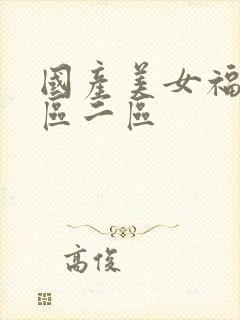 國產美女福
區二區
高俊